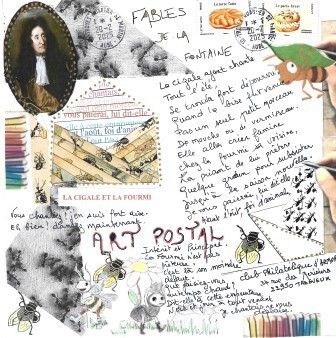 FABLES
DE LA
FONTAINE
La cigale ayant chanté
Tout l'été,
Se trouva fort dépourvue
Quand la bise fut venue
Pas un seul petit morceau
De mouche ou de vermisseau.
Elle alla crier famine
Chez la fourmi sa voisine,
La priant de lui prêter
Quelque grain pour subsister
Jusqu'à la saison nouvelle.
Je vous paierai, lui dit-elle,
Avant l'août, foi d'animal,
vous paierai, lui dit-elle
août, foi d'ani
LA CIGALE ET LA FOURMI
Vous chantiez ! j'en suis fort aise.
Eh bien ! dansez maintenant.
ART POSTAL
Intérêt et Principal.
La Fourmi n'est pas
prêteuse.
C'est là son moindre
défaut.
Que faisiez-vous
au temps chaud ?
Dit-elle à cette emprunteuse
Nuit et jour à tout venant
Je chantais, ne vous
déplaise.
Club Philatélique d'
34 rue des Rosiers
22950 TREGUEUX